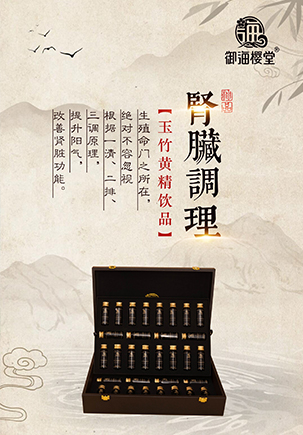 御海樱堂®
腎臟調理
【玉竹黄精饮品】
生殖命门之所在，
绝对不容忽视
根据一清、二排、
三调原理，
提升阳气，
改善肾脏功能。